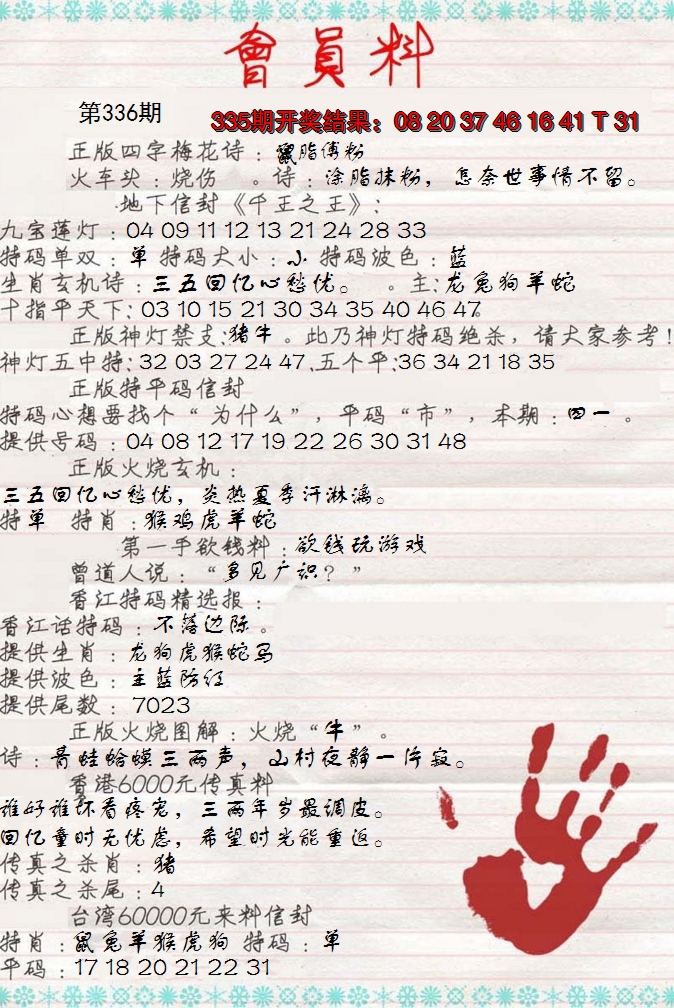 會員料
第336期
335期开奖结果：08 20 37 46 16 41 T 31
正版四字梅花诗：鼠脂傅粉
火车头：烧伤 。诗：涂脂抹粉，怎奈世事情不留。
地下信封《千王之王》：
九宝莲灯：04 09 11 12 13 21 24 28 33
特码单双：单 特码大小：小 特码波色：蓝
生肖玄机诗：三五回忆心愁忧。 。主：龙兔狗羊蛇
十指平天下：03 10 15 21 30 34 35 40 46 47
正版神灯禁支：猪牛。此乃神灯特码绝杀，请大家参考！
神灯五中特：32 03 27 24 47.五个平：36 34 21 18 35
正版特平码信封
特码心想要找个“为什么”，平码“市”，本期：四一。
提供号码：04 08 12 17 19 22 26 30 31 48
正版火烧玄机：
三五回忆心愁忧，炎热夏季汗淋漓。
特单 特肖：猴鸡虎羊蛇
第一手欲钱料：欲钱玩游戏
曾道人说：“多见广识？”
香江特码精选报：
香江话特码：不落边际。
提供生肖：龙狗虎猴蛇马
提供波色：主蓝防红
提供尾数：7023
正版火烧图解：火烧“牛”。
诗：青蛙蛤蟆三两声，山村夜静一片寂。
香港6000元传真料
谁好谁坏看疼宠，三两年岁最调皮。
回忆童时无忧虑，希望时光能重返。
传真之杀肖：猪
传真之杀尾：4
台湾60000元来料信封
特肖：鼠兔羊猴虎狗 特码：单
平码：17 18 20 21 22 31